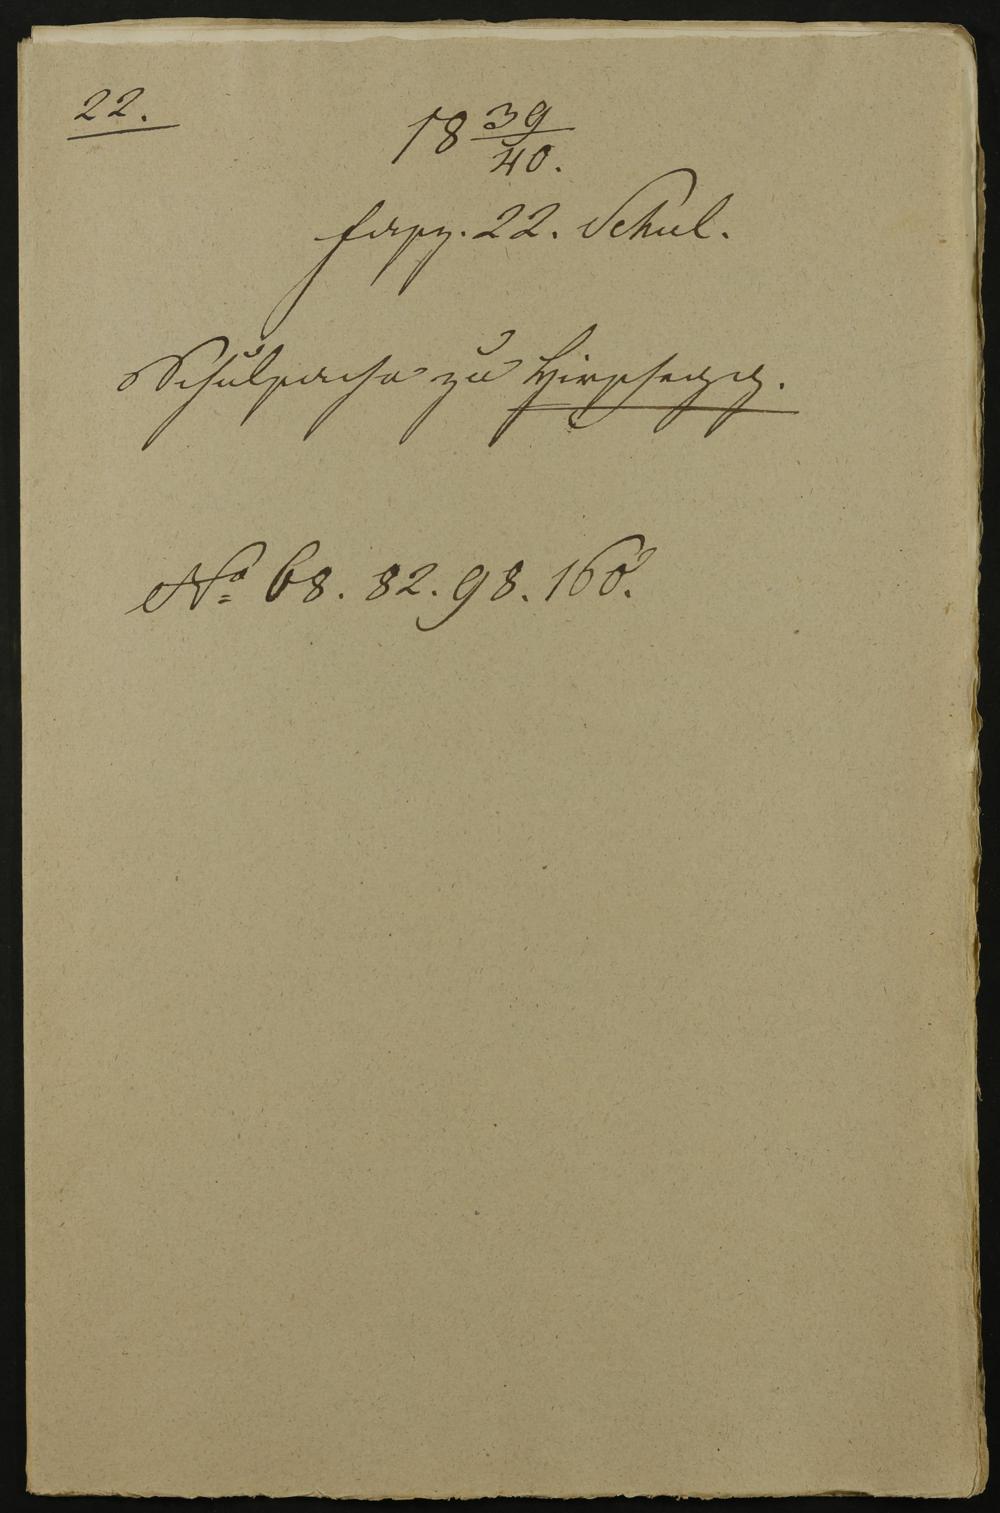 22.
18 39/40.
fasz. 22. Schul.
Schulsache zu Hirschegg.
No 68. 82. 98. 168.